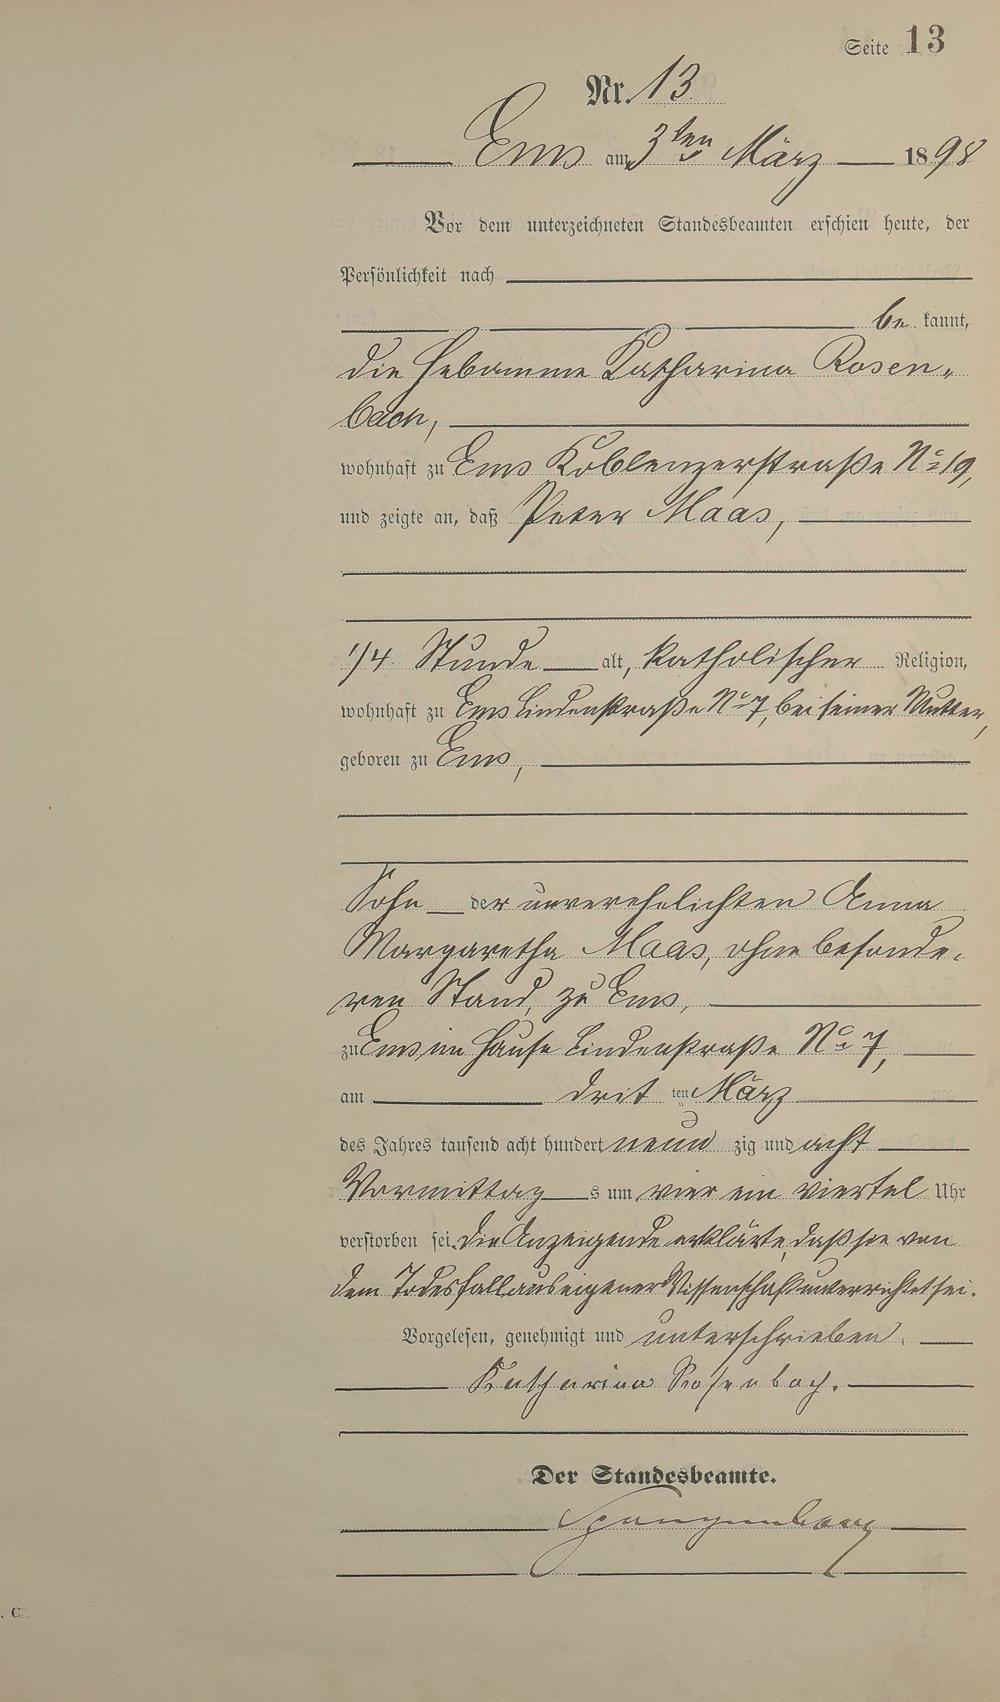 Seite 13
Nr. 13
Ems am 3ten März 1898
Vor dem unterzeichneten Standesbeamten erschien heute, der
Persönlichkeit nach
be kannt,
die Hebamme Katharina Rosen-
bach,
wohnhaft zu Ems Koblenzerstraße No 19,
und zeigte an, daß Peter Maas,
1/4 Stunde alt, katholischer Religion,
wohnhaft zu Ems Lindenstraße No 7, bei seiner Mutter,
geboren zu Ems,
Sohn der unverehelichten Anna
Margaretha Maas, ohne besonde-
ren Stand, zu Ems,
zu Ems im Hause Lindenstraße No 7,
am drit ten März
des Jahres tausend acht hundert neun zig und acht
Vormittag s um vier ein viertel Uhr
verstorben sei. Die Anzeigende erklärte, daß sie von
dem Todesfall aus eigener Wissenschaft unterrichtet sei.
Vorgelesen, genehmigt und unterschrieben.
Katharina Rosenbach.
Der Standesbeamte.
Spangenberg
. C.